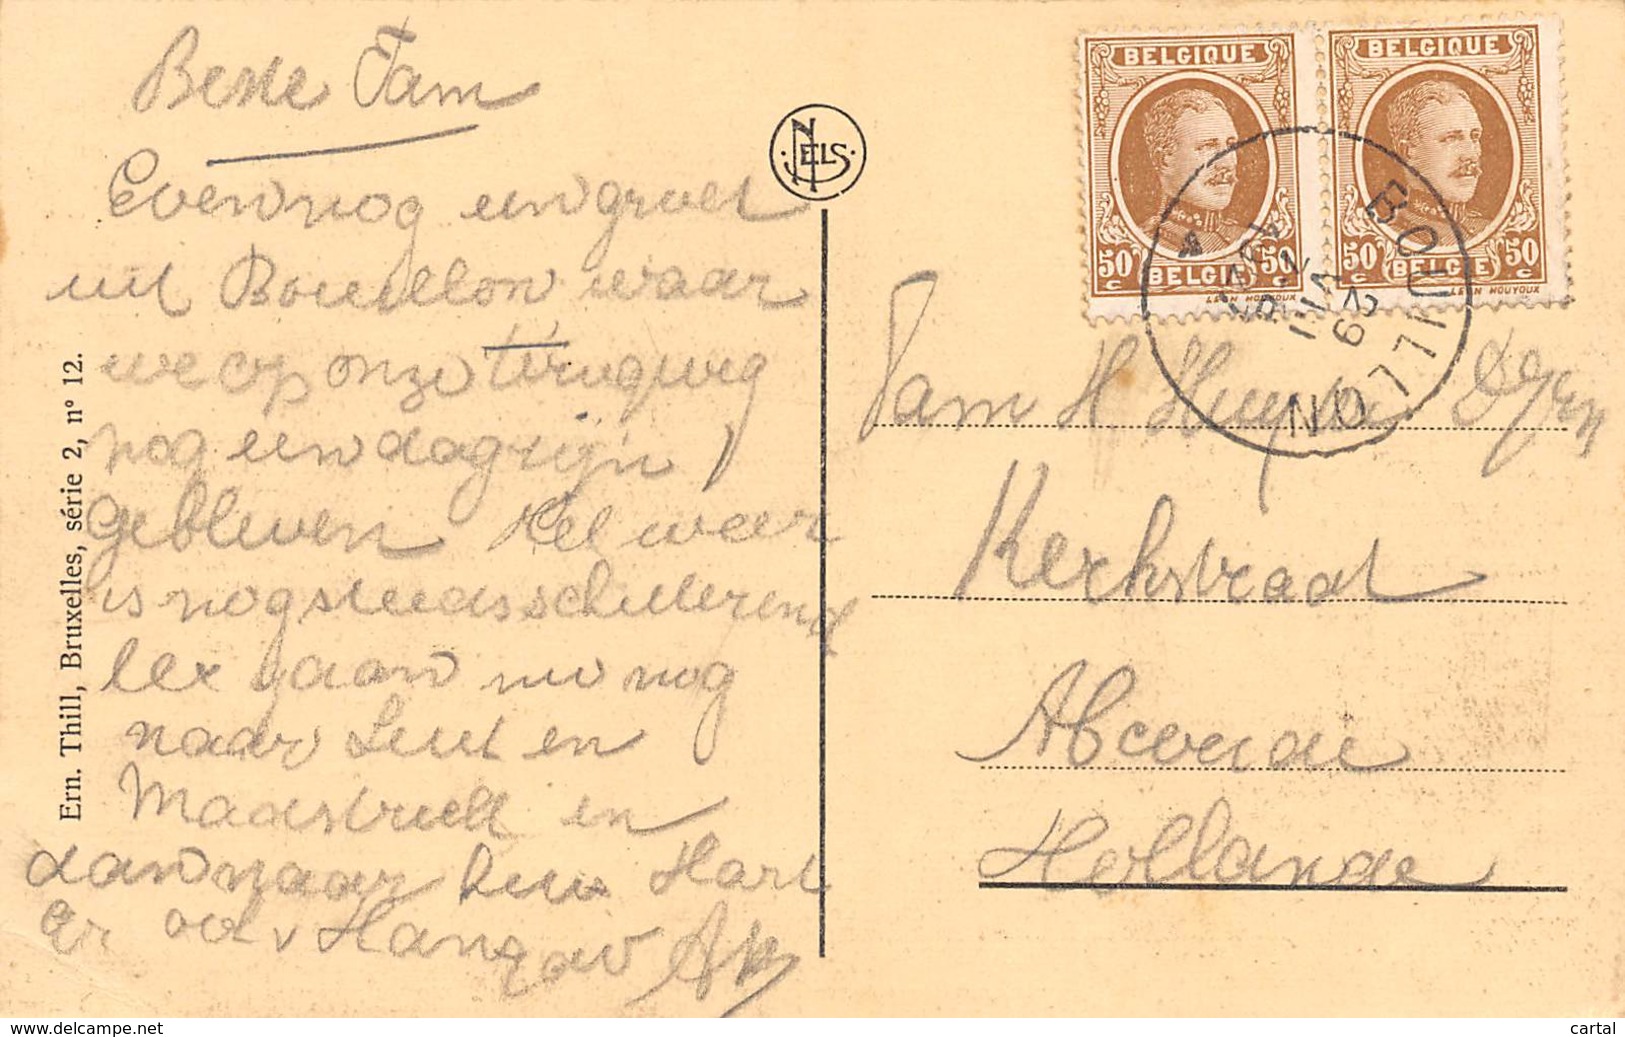 Beste Fam
Even nog een groet
uit Bouillon waar
we op onze terugweg
nog een dag zijn
gebleven Het weer
is nog steeds schitterend
gaan nu nog
naar Luik en
Maastricht en
dan naar huis Hart
Gr ook v Han
NELS
Ern. Thill, Bruxelles, série 2, n° 12.
BELGIQUE
50 c BELGIE 50 c
LEON HOUYOUX
BELGIQUE
50 c BELGIE 50 c
LEON HOUYOUX
BOUILLON
VIII
29
Fam H.
Kerkstraat
Abcoude
Hollande
www.delcampe.net
cartal